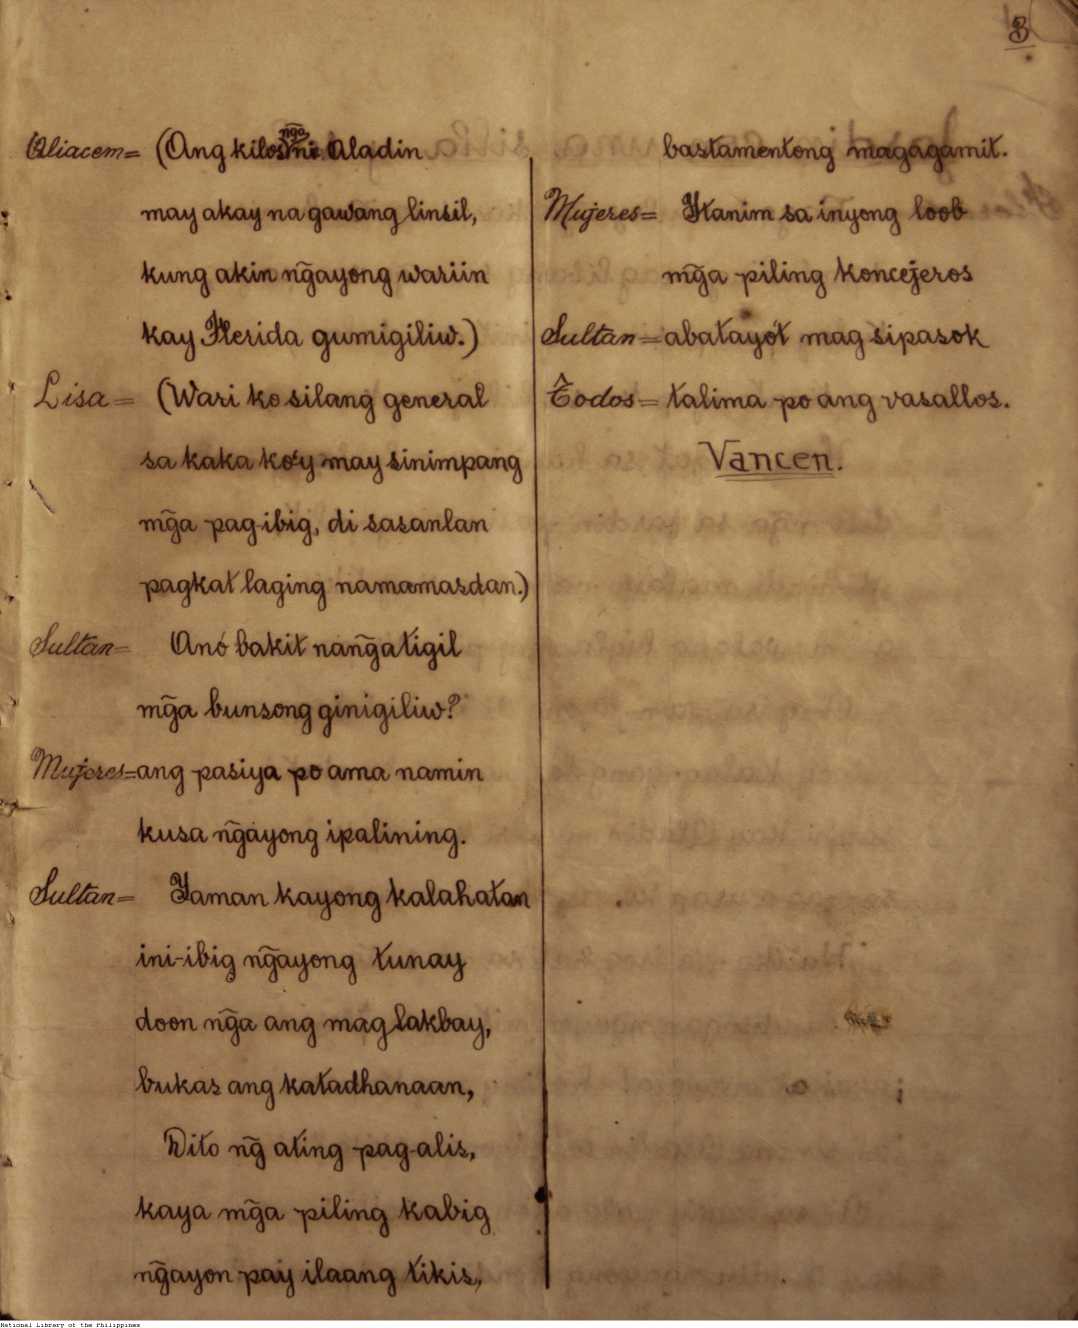 3
Aliacem= (Ang kilos nga ni Aladin
may akay na gawang linsil,
kung akin n͠gayong wariin
kay Flerida gumigiliw.)
Lisa= (Wari ko silang general
sa kaka ko'y may sinimpang
mg̃a pag-ibig, di sasanlan
pagkat laging namamasdan.)
Sultan= Anó bakit nang̃atigil
mg̃a bunsong ginigiliw?
Mujeres= ang pasiya po ama namin
kusa ng̃ayong ipalining.
Sultan= Yaman kayong kalahatan
ini-ibig ng̃ayong tunay
doon ng̃a ang mag lakbay,
bukas ang katadhanaan,
Dito ng̃ ating pag-alis,
kaya mg̃a piling kabig
ng̃ayon pay ilaang tikis,
bastamentong magagamit.
Mujeres= Itanim sa inyong loob
mg̃a piling koncejeros
Sultan= abatayót mag sipasok
Todos= talima po ang vasallos.
Vancen.
National Library of the Philippines